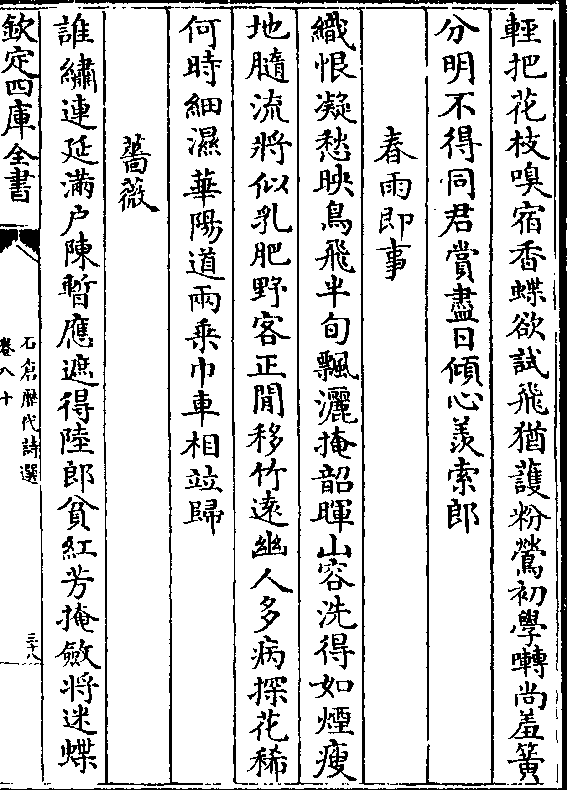 輕把花枝嗅宿香蝶欲試飛猶護粉鶯初學囀尚羞簧
分明不得同君賞盡日傾心羨索郎
春雨即事
織恨凝愁映鳥飛半旬飄灑掩韶暉山容洗得如煙瘦
地髓流將似乳肥野客正閒移竹遠幽人多病探花稀
何時細濕華陽道兩乘巾車相竝歸
薔薇
誰繡連延滿户陳暫應遮得陸郎貧紅芳掩斂將迷蝶
欽定四庫全書
石倉歷代詩選
卷八十
三十八